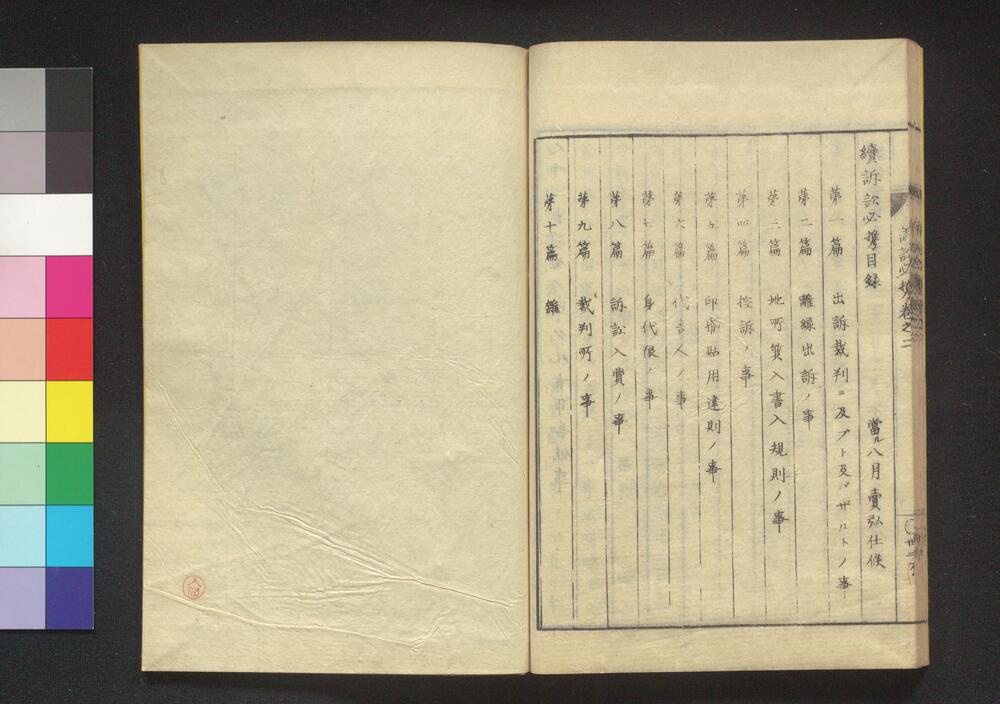 續訴訟必携目録　當ル八月賣弘仕候
第一篇　出訴裁判ニ及ブト及バザルトノ事
第二篇　離縁出訴ノ事
第三篇　地所質入書入規則ノ事
第四篇　控訴ノ事
第五篇　印紙貼用違則ノ事
第六篇　代言人ノ事
第七篇　身代限ノ事
第八篇　訴訟入費ノ事
第九篇　裁判所ノ事
第十篇　雜
訴訟必携卷之二